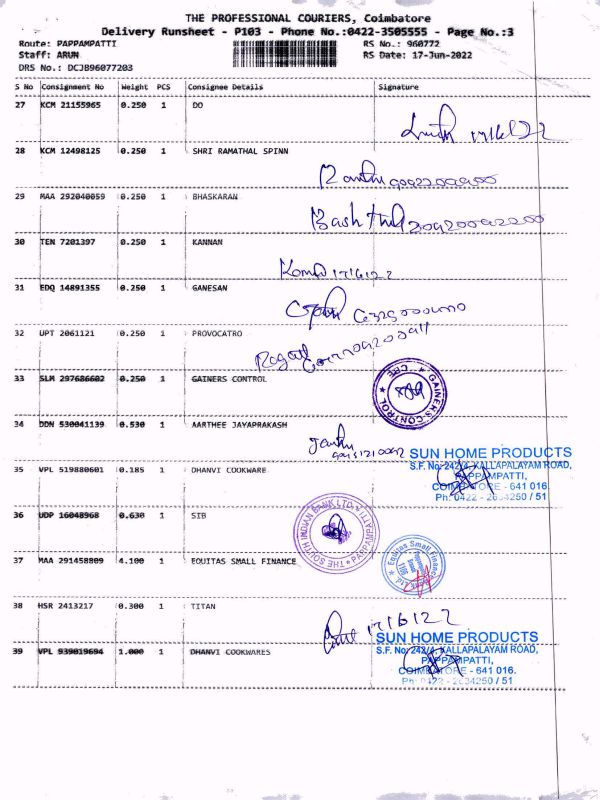 THE PROFESSIONAL COURIERS, Coimbatore
Delivery Runsheet - P103 - Phone No.:0422-3505555 - Page No.:3
Route: PAPPAMPATTI RS No.: 960772
Staff: ARUN RS Date: 17-Jun-2022
DRS No.: DCJB96077203
S No Consignment No Weight PCS Consignee Details Signature
27 KCM 21155965 0.250 1 DO
28 KCM 12498125 0.250 1 SHRI RAMATHAL SPINN
29 MAA 292040059 0.250 1 BHASKARAN
30 TEN 7201397 0.250 1 KANNAN
17/6/22
31 EDQ 14891355 0.250 1 GANESAN
32 UPT 2061121 0.250 1 PROVOCATRO
33 SLM 297686602 0.250 1 GAINERS CONTROL
GAINERS-CONTROL CBE
34 DDN 530041139 0.530 1 AARTHEE JAYAPRAKASH
SUN HOME PRODUCTS
S.F. No: 242/4, KALLAPALAYAM ROAD,
PAPPAMPATTI,
COIMBATORE - 641 016.
Ph: 0422 - 2634250 / 51
35 VPL 519880601 0.185 1 DHANVI COOKWARE
36 UDP 16048968 0.630 1 SIB
THE SOUTH INDIAN BANK LTD. PAPPAMPATTI
37 MAA 291458809 4.100 1 EQUITAS SMALL FINANCE
Equitas Small Finance Bank Ltd.
38 HSR 2413217 0.300 1 TITAN
17/6/22
SUN HOME PRODUCTS
S.F. No: 242/4, KALLAPALAYAM ROAD,
PAPPAMPATTI,
COIMBATORE - 641 016.
Ph: 0422 - 2634250 / 51
39 VPL 939819694 1.000 1 DHANVI COOKWARES